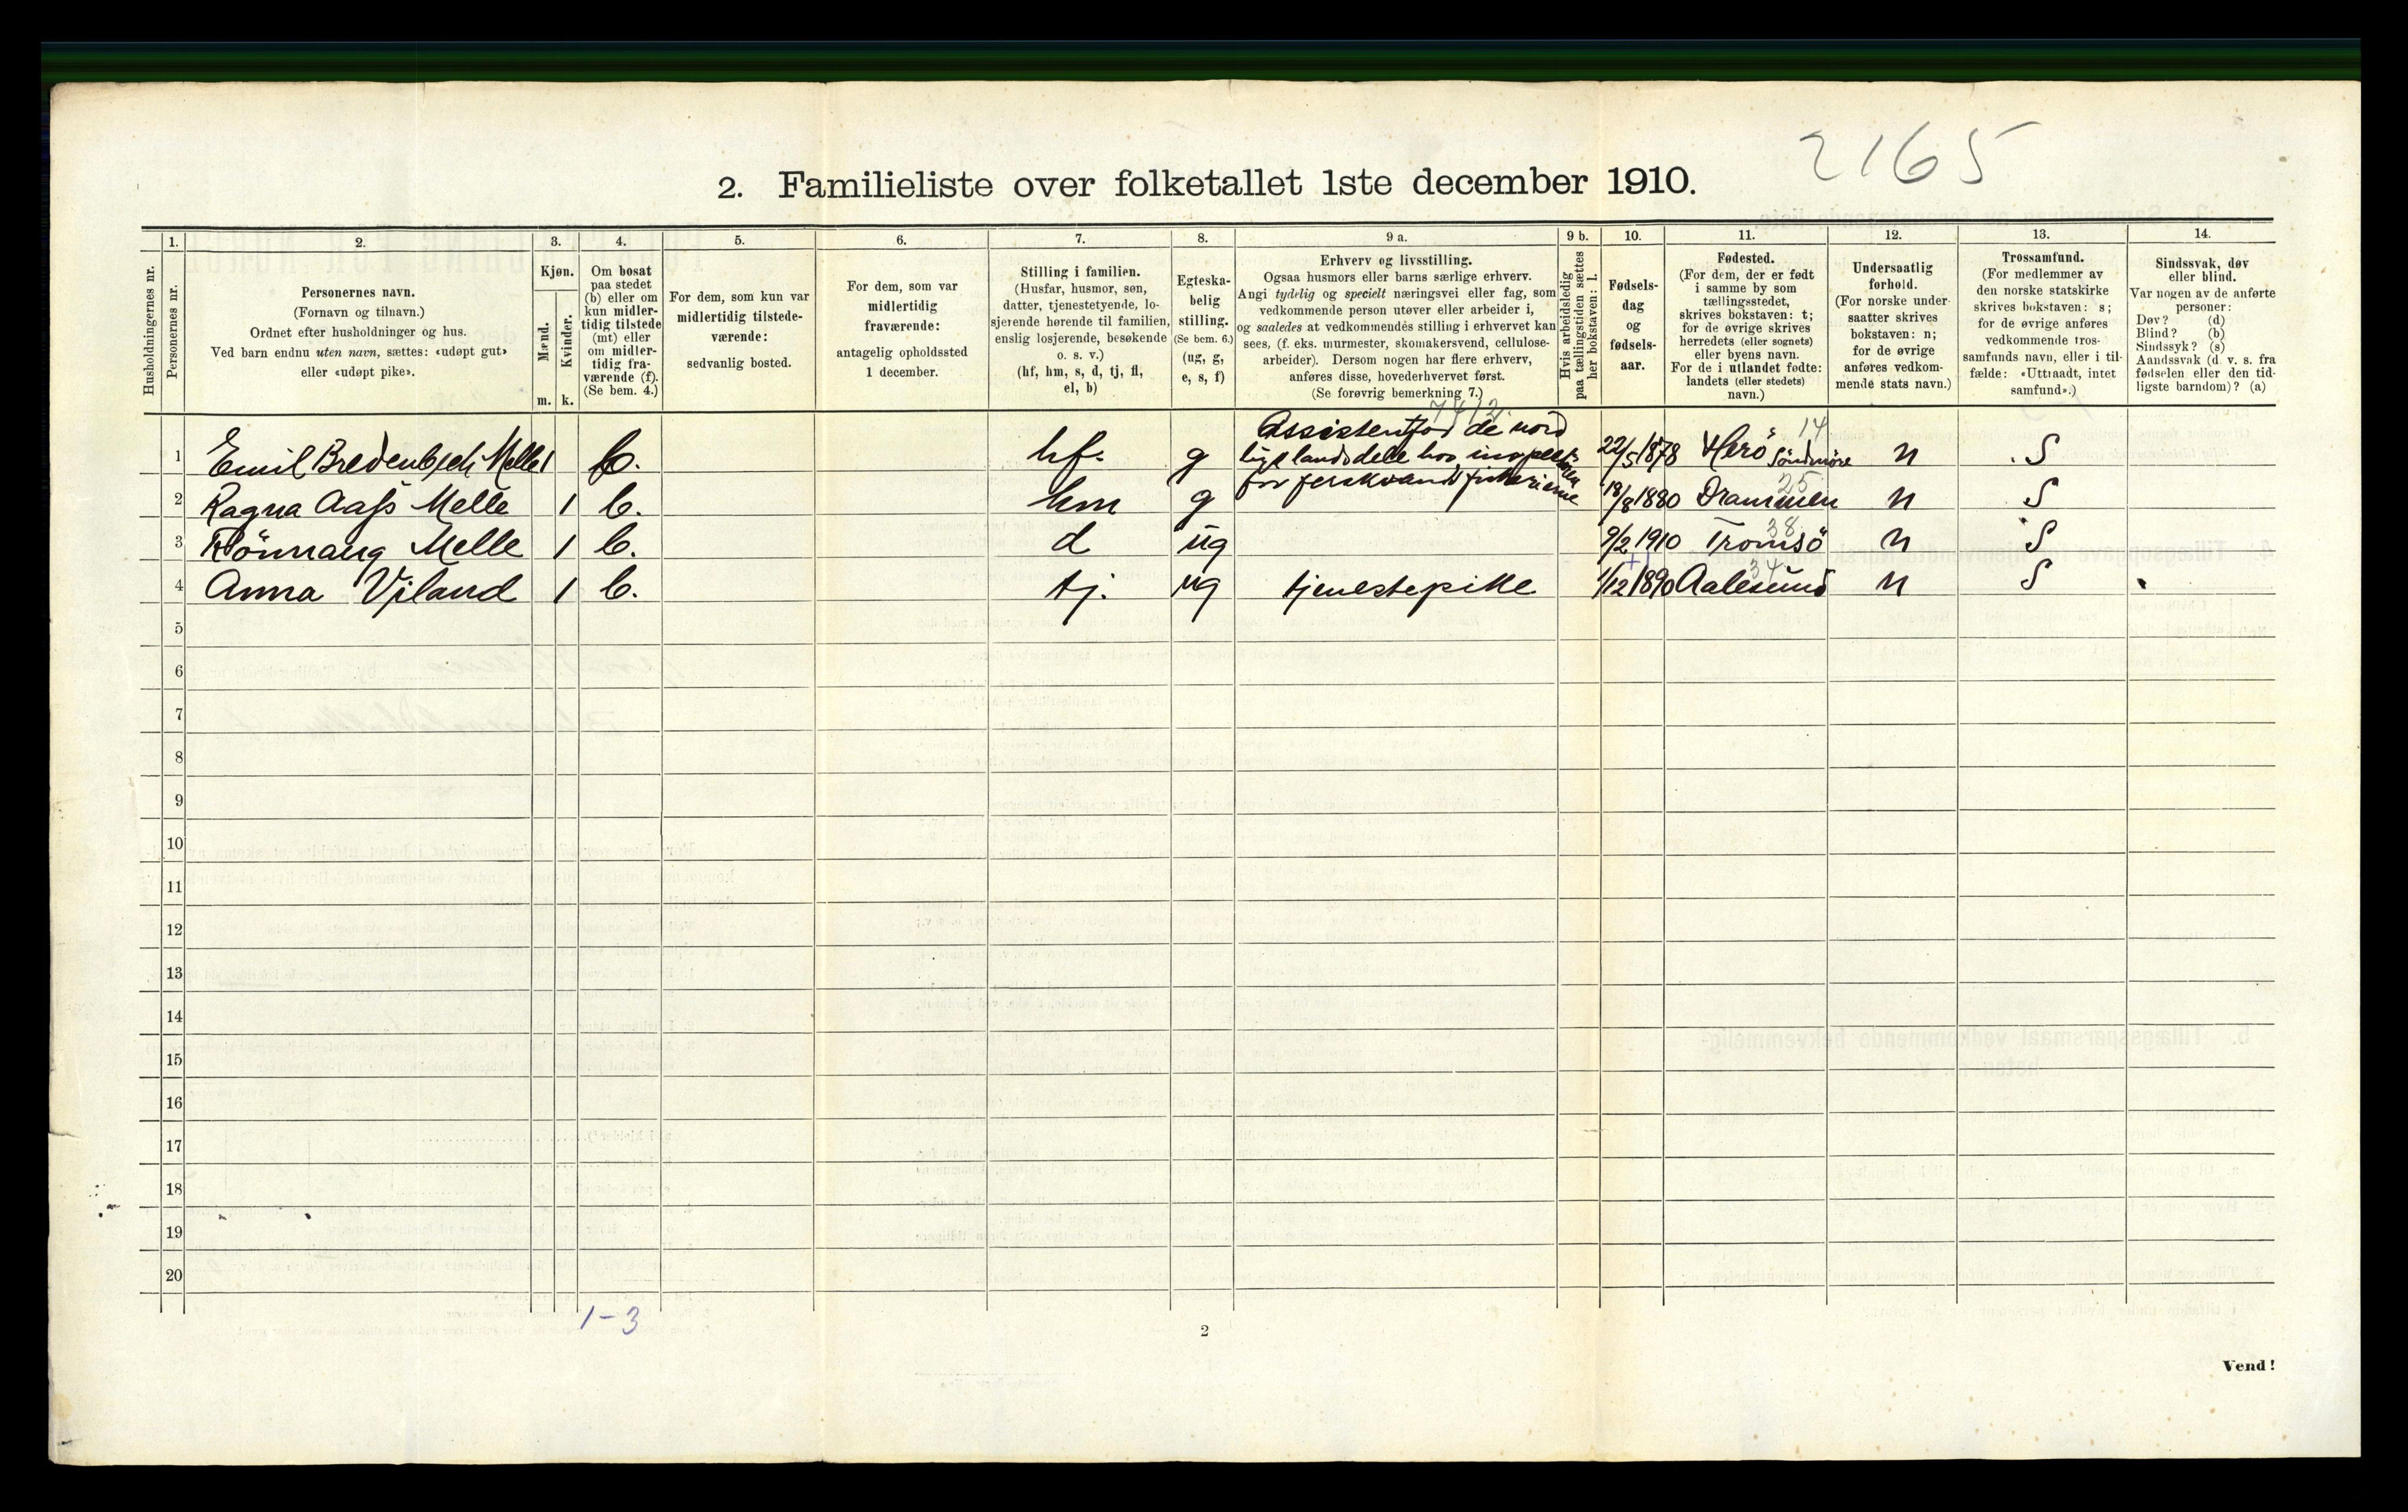 2165
2. Familieliste over folketallet 1ste december 1910.
Husholdningernes nr.
1.
Personernes nr.
2.
Personernes navn.
(Fornavn og tilnavn.)
Ordnet efter husholdninger og hus.
Ved barn endnu uten navn, sættes: «udøpt gut»
eller «udøpt pike».
3.
Kjøn.
Mænd.
Kvinder.
m. k.
4.
Om bosat
paa stedet
(b) eller om
kun midler-
tidig tilstede
(mt) eller
om midler-
tidig fra-
værende (f).
(Se bem. 4.)
5.
For dem, som kun var
midlertidig tilstede-
værende:
sedvanlig bosted.
6.
For dem, som var
midlertidig
fraværende:
antagelig opholdssted
1 december.
7.
Stilling i familien.
(Husfar, husmor, søn,
datter, tjenestetyende, lo-
sjerende hørende til familien,
enslig losjerende, besøkende
o. s. v.)
(hf, hm, s, d, tj, fl,
el, b)
8.
Egteska-
belig
stilling.
(Se bem. 6.)
(ug, g,
e, s, f)
9 a.
Erhverv og livsstilling.
Ogsaa husmors eller barns særlige erhverv.
Angi tydelig og specielt næringsvei eller fag, som
vedkommende person utøver eller arbeider i,
og saaledes at vedkommendes stilling i erhvervet kan
sees, (f. eks. murmester, skomakersvend, cellulose-
arbeider). Dersom nogen har flere erhverv,
anføres disse, hovederhvervet først.
(Se forøvrig bemerkning 7.)
9 b.
Hvis arbeidsledig
paa tællingstiden sættes
her bokstaven: l.
10.
Fødsels-
dag
og
fødsels-
aar.
11.
Fødested.
(For dem, der er født
i samme by som
tællingsstedet,
skrives bokstaven: t;
for de øvrige skrives
herredets (eller sognets)
eller byens navn.
For de i utlandet fødte:
landets (eller stedets)
navn.)
12.
Undersaatlig
forhold.
(For norske under-
saatter skrives
bokstaven: n;
for de øvrige
anføres vedkom-
mende stats navn.)
13.
Trossamfund.
(For medlemmer av
den norske statskirke
skrives bokstaven: s;
for de øvrige anføres
vedkommende tros-
samfunds navn, eller i til-
fælde: «Uttraadt, intet
samfund».)
14.
Sindssvak, døv
eller blind.
Var nogen av de anførte
personer:
Døv? (d)
Blind? (b)
Sindssyk? (s)
Aandssvak (d. v. s. fra
fødselen eller den tid-
ligste barndom)? (a)
1 Emil Bredenbech Melle 1 b. hf. g Assistent for de nord
lige landsdele hos inspektøren
for ferskvandsfiskerierne 22/5 1878 Herö Söndmöre 14 n S
2 Ragna Aass Melle 1 b. hm g 18/8 1880 Drammen 25 n S
3 Rönnaug Melle 1 b. d ug 9/2 1910 Tromsö 38 n S
4 Anna Viland 1 b. tj. ug tjenestepike 1/12 1890 Aalesund 34 n S
5
6
7
8
9
10
11
12
13
14
15
16
17
18
19
20
1-3
2
Vend!